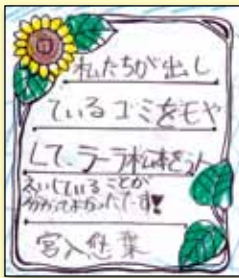 私たちが出し
ているゴミをモや
して、ラーラ松本をうん
えいしていることが
分かってよかったです!
宮入悠葉